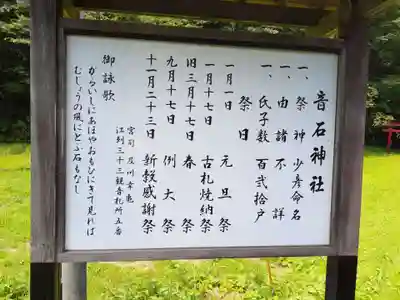 音石神社
一、祭神 少彦命名
一、由諸 不詳
一、氏子数 百弐拾戸
祭日
一月一日 元旦祭
一月十七日 古札焼納祭
旧三月十七日 春祭
九月十七日 例大祭
十一月二十三日 新穀感謝祭
御詠歌
かるいしにあほやおもひにきて見れば
むしょうの風にとぶ石もなし
宮司 及川幸恵
江刺三十三観音札所五番